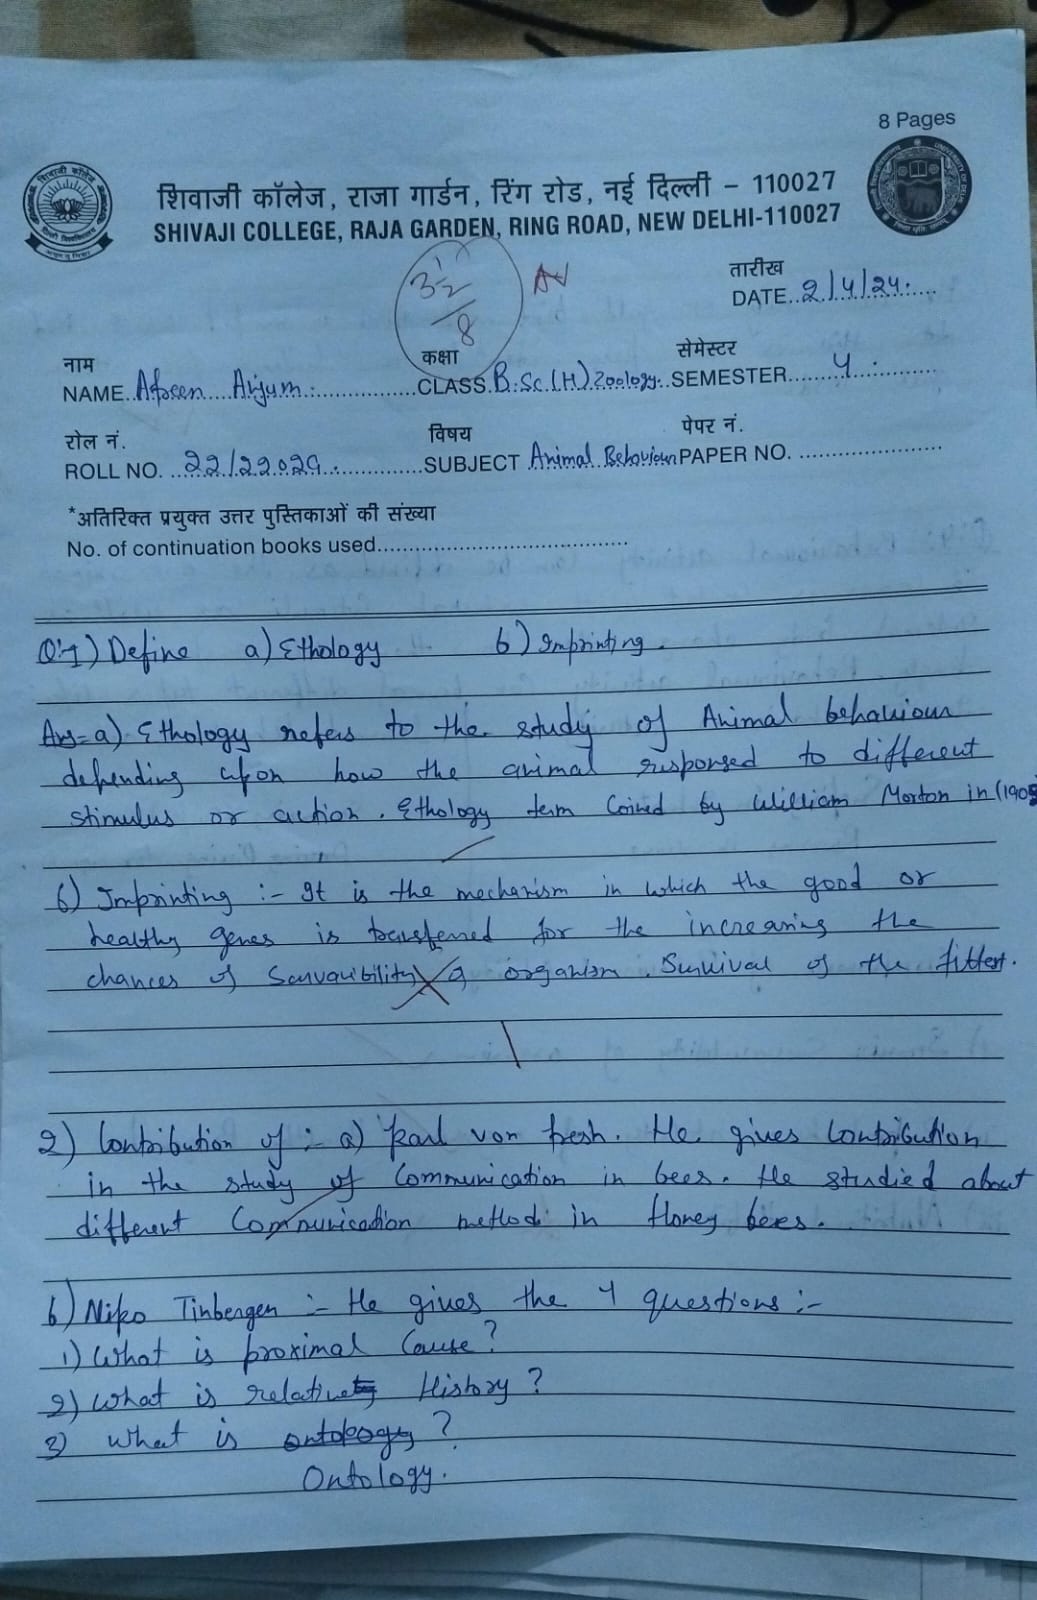 8 Pages
शिवाजी कॉलेज, राजा गार्डन, रिंग रोड, नई दिल्ली - 110027
SHIVAJI COLLEGE, RAJA GARDEN, RING ROAD, NEW DELHI-110027
3 1/2
8
तारीख
DATE..2/4/24.
नाम
NAME..Afreen Anjum.
कक्षा
CLASS B.Sc.(H) Zoology.
सेमेस्टर
SEMESTER 4.
रोल नं.
ROLL NO. 22/22029.
विषय
SUBJECT Animal Behaviour
पेपर नं.
PAPER NO.
*अतिरिक्त प्रयुक्त उत्तर पुस्तिकाओं की संख्या
No. of continuation books used
Q.1) Define a) Ethology b) Imprinting.
Ans- a) Ethology refers to the study of Animal behaviour
depending upon how the animal responsed to different
stimulus or action. Ethology term coined by William Morton in (1905
b) Imprinting :- It is the mechanism in which the good or
healthy genes is transferred for the increasing the
chances of organism. Survival of the fittest.
2) Contribution of :- a) Karl von fresh. He gives Contribution
in the study of Communication in bees. He studied about
different Communication method in Honey bees.
b) Niko Tinbergen :- He gives the 4 questions :-
1) What is proximal Cause?
2) What is relative History?
3) What is ontology?
Ontology.